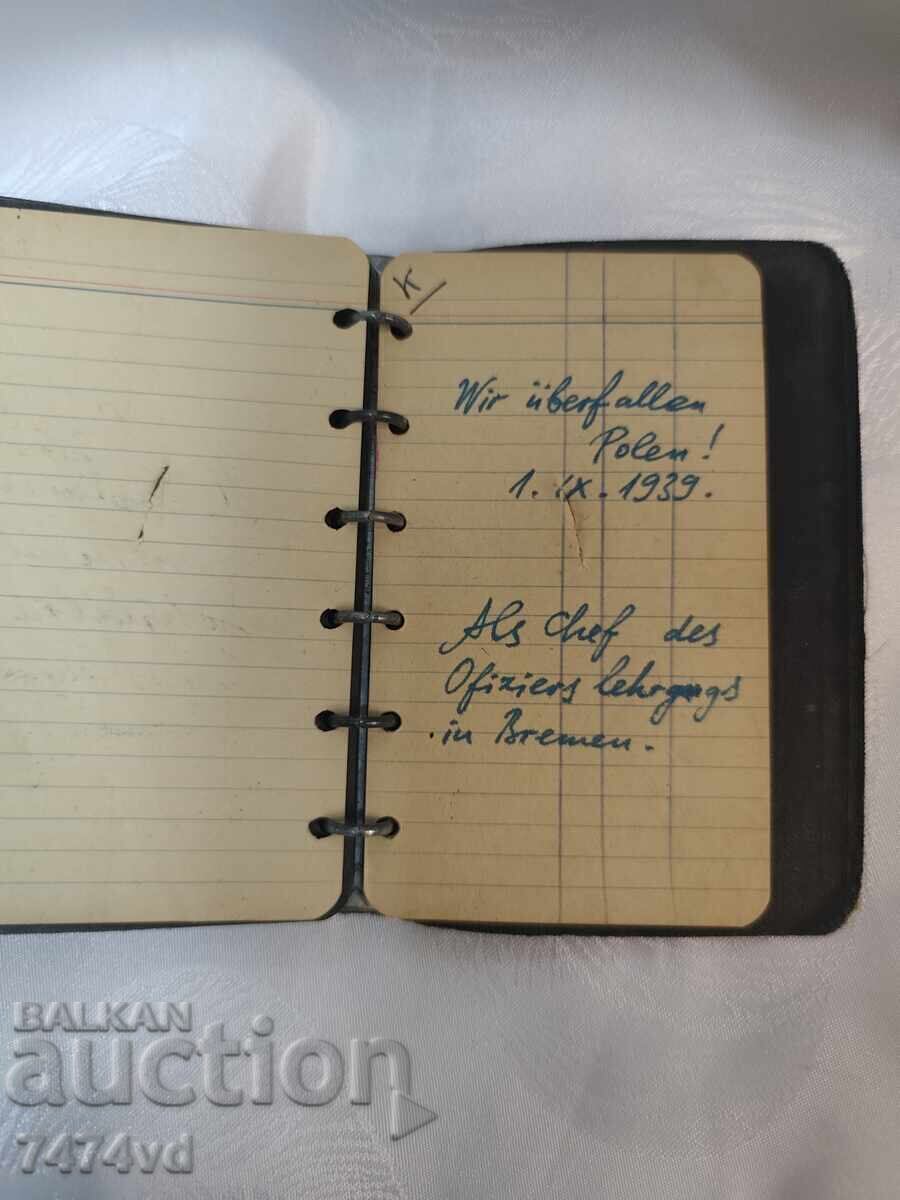 K
Wir überfallen
Polen!
1. IX. 1939.
Als Chef des
Ofiziers lehrgangs
in Bremen.
BALKAN
auction
7474vd